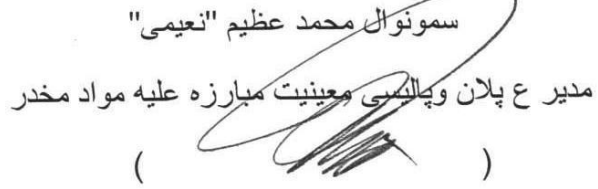 سمونوال محمد عظیم "نعیمی"
مدیر ع پلان وپالیسی معینیت مبارزه علیه مواد مخدر
( )